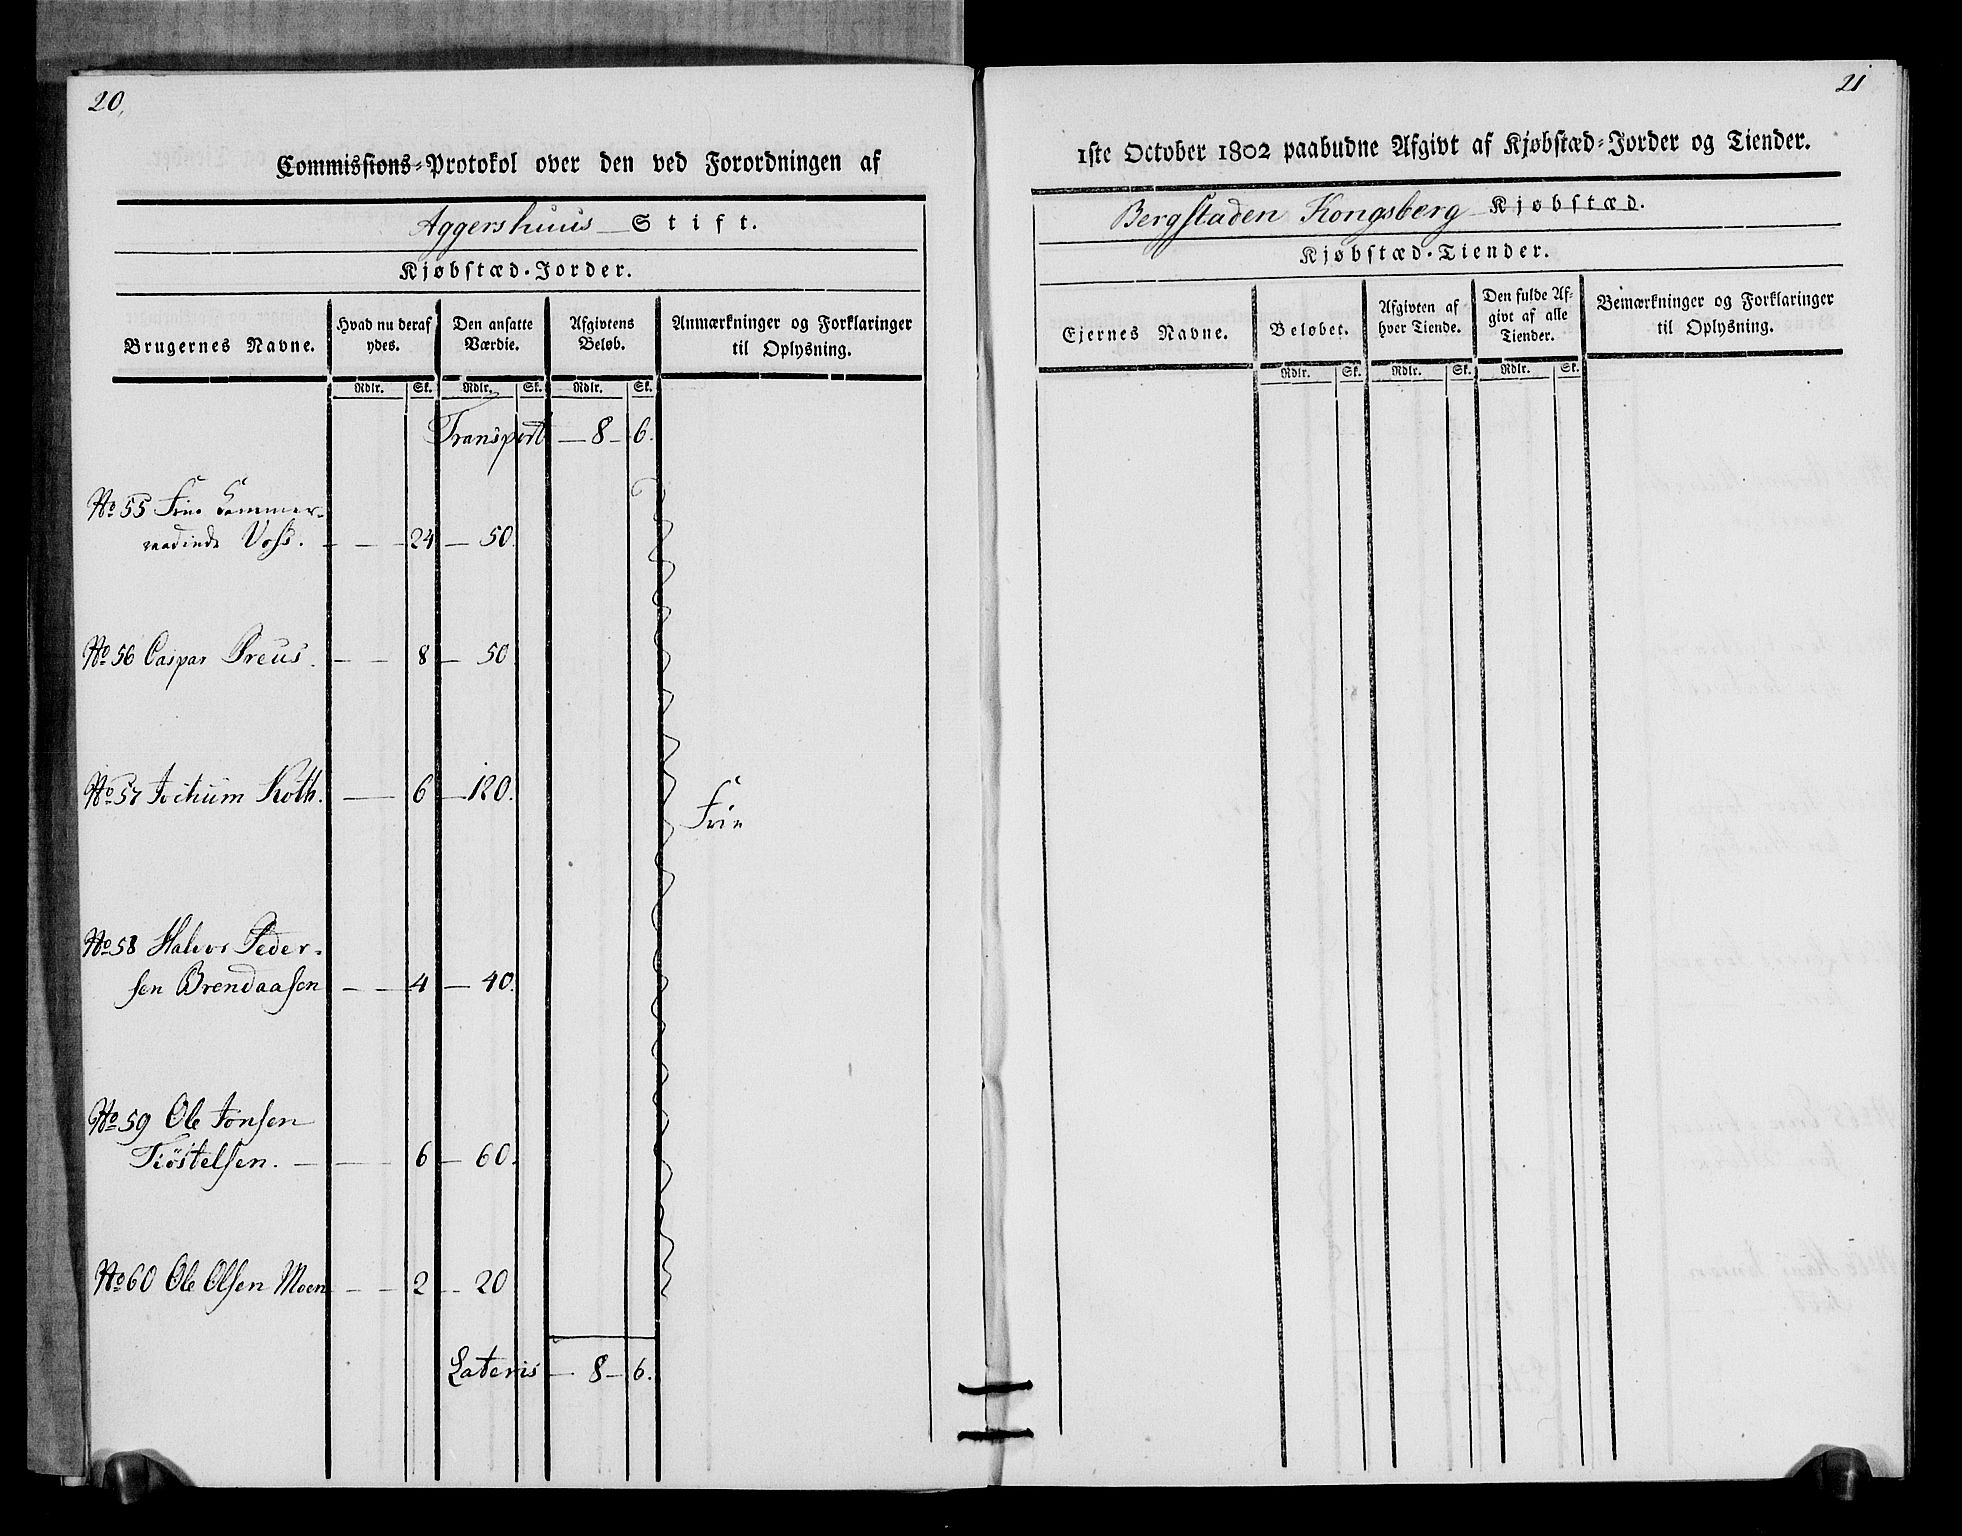 20.
Commissions-Protokol over den ved Forordningen af
Aggershuus Stift.
Kjøbstæd-Jorder.
Brugernes Navne. Hvad nu deraf ydes. Den ansatte Værdie. Afgivtens Beløb. Anmærkninger og Forklaringer til Oplysning.
Rdlr. Sk. Rdlr. Sk. Rdlr. Sk.
Transport — 8 — 6.
No 55 Frue Cammer-
raadinde Voss. — — 24 — 50.
No 56 Caspar Preus. — — 8 — 50
No 57 Jochum Koth. — 6 — 120.
Frie
No 58 Halvor Peder-
sen Brendaasen — — 4 — 40.
No 59 Ole Jonsen
Tiøstelsen. — — 6 — 60.
No 60 Ole Olsen Moen — — 2 — 20
Lateris — 8 — 6.
21
1ste October 1802 paabudne Afgivt af Kjøbstæd-Jorder og Tiender.
Bergstaden Kongsberg Kjøbstæd.
Kjøbstæd-Tiender.
Ejernes Navne. Beløbet. Afgivten af hver Tiende. Den fulde Afgivt af alle Tiender. Bemærkninger og Forklaringer til Oplysning.
Rdlr. Sk. Rdlr. Sk. Rdlr. Sk.